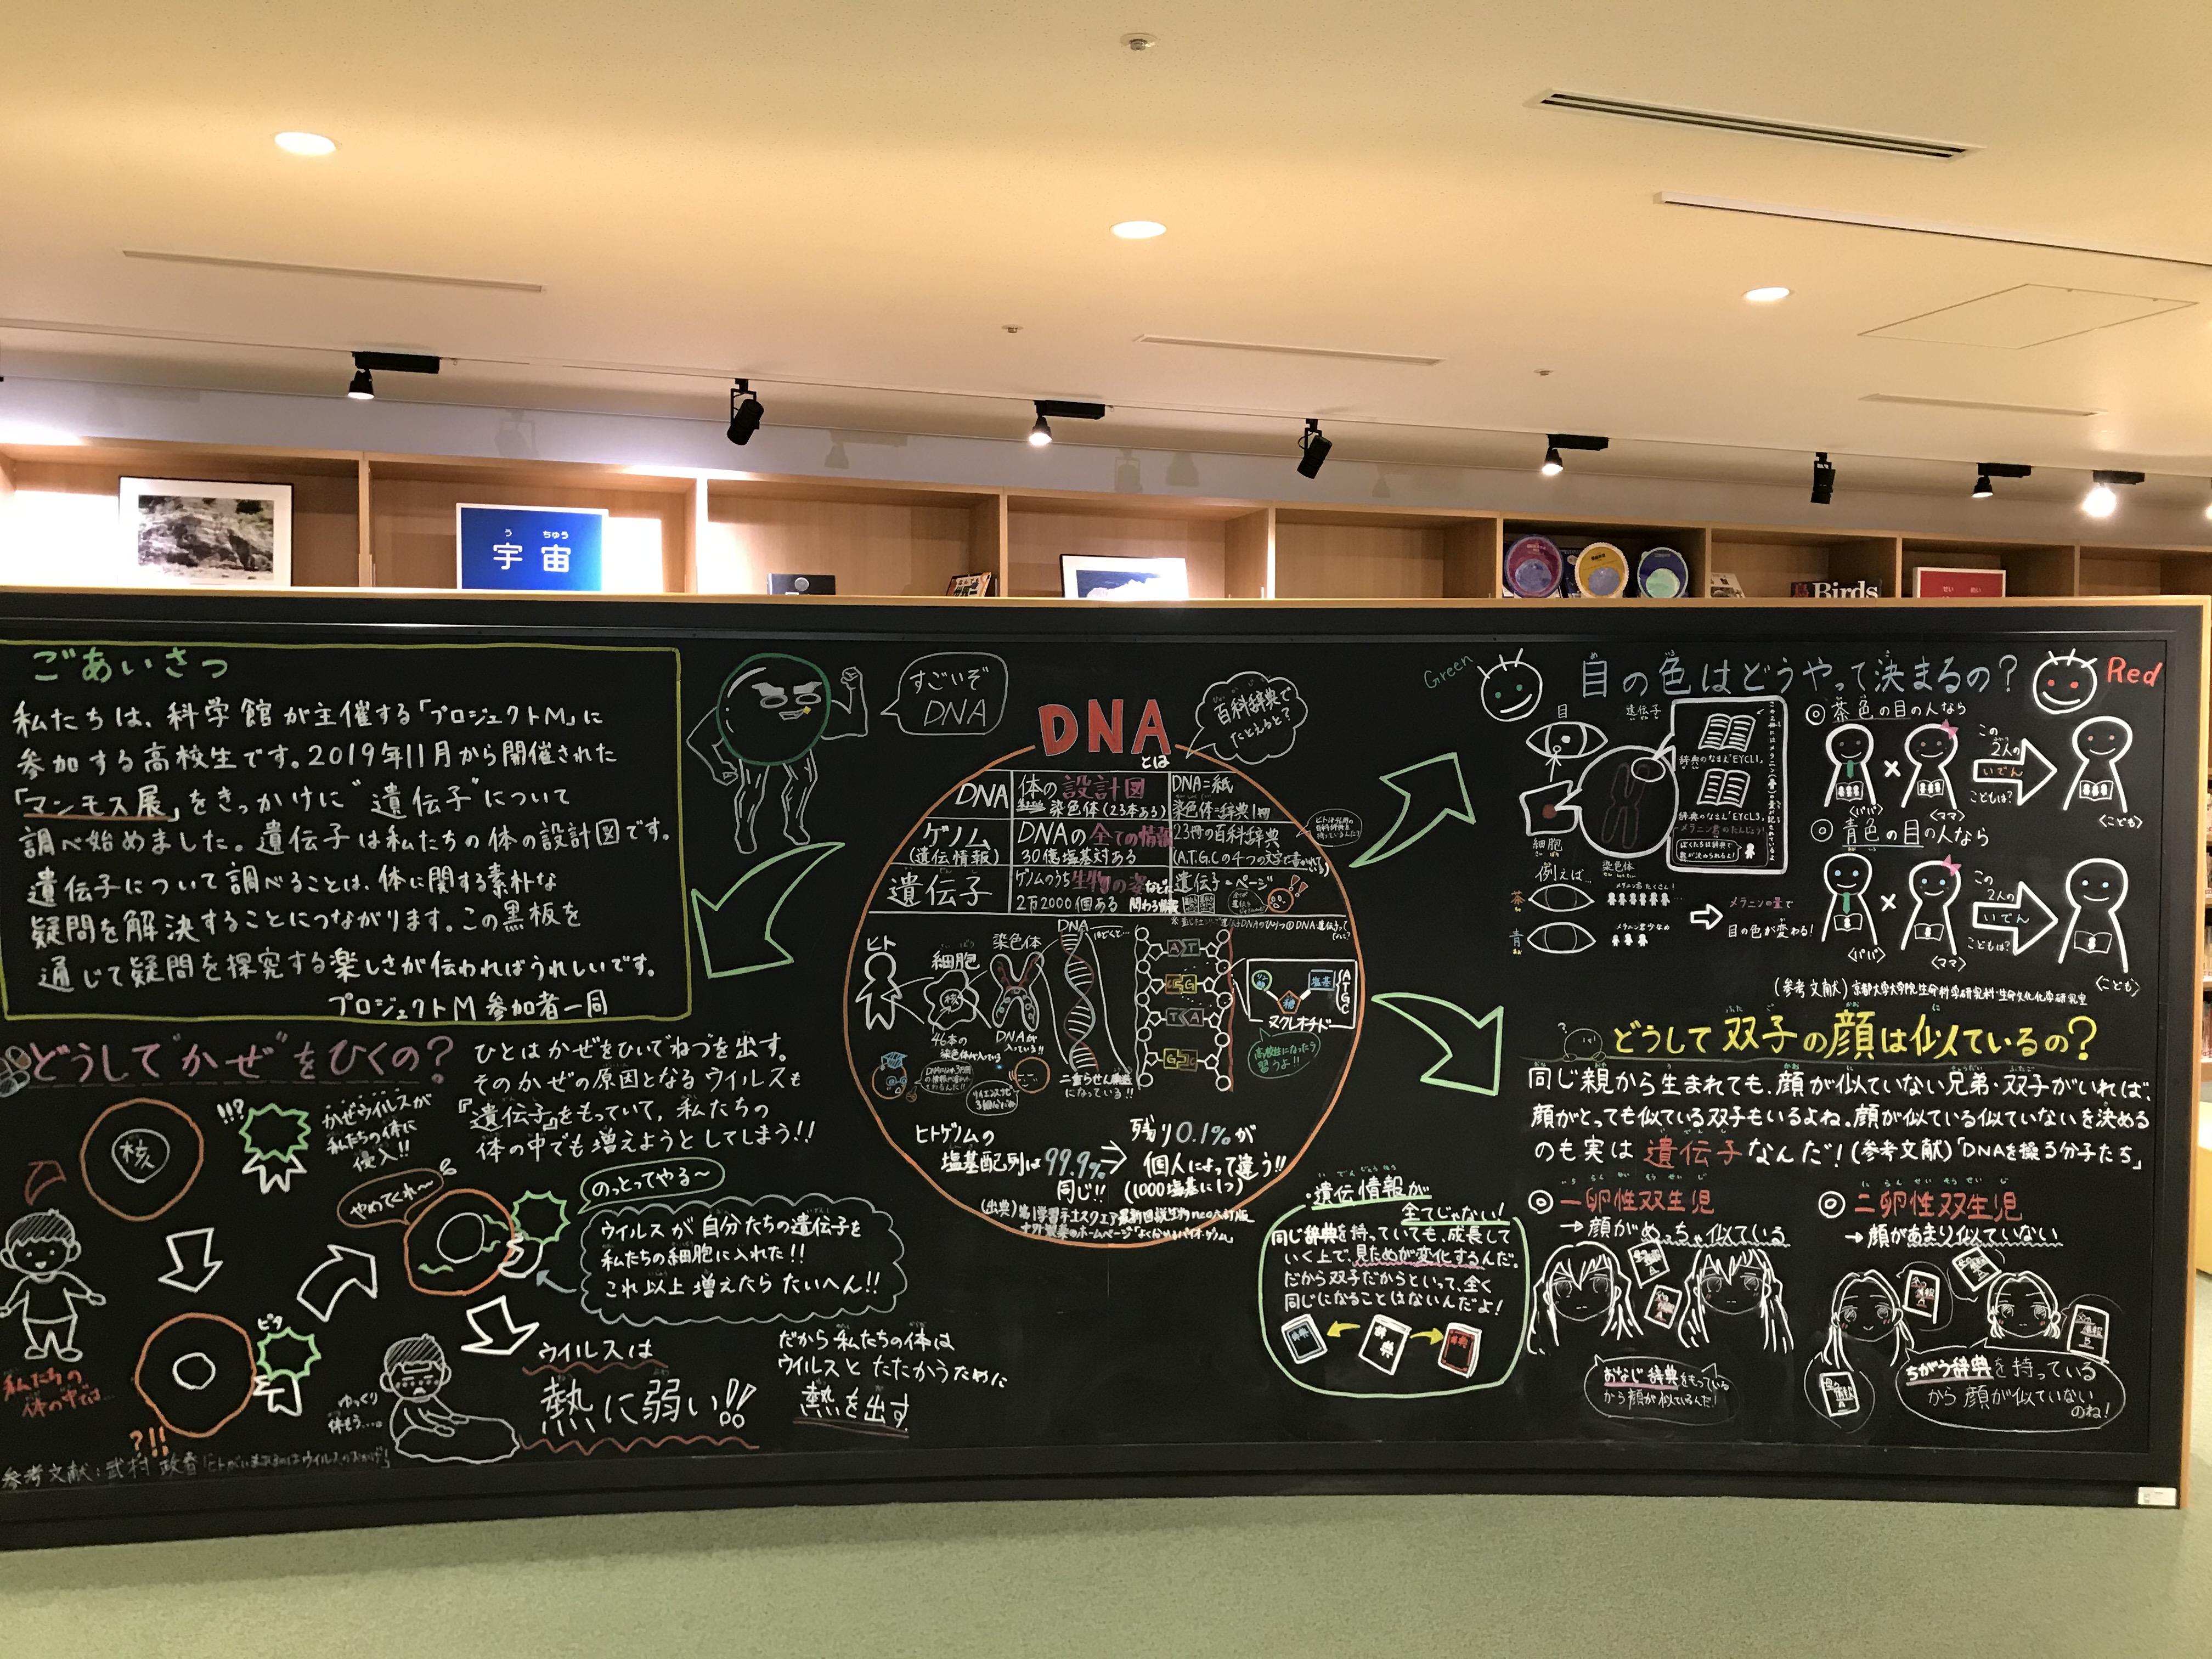 う ちゅう
宇宙
Birds
ごあいさつ
私たちは、科学館が主催する「プロジェクトM」に
参加する高校生です。2019年11月から開催された
「マンモス展」をきっかけに"遺伝子"について
調べ始めました。遺伝子は私たちの体の設計図です。
遺伝子について調べることは、体に関する素朴な
疑問を解決することにつながります。この黒板を
通じて疑問を探究する楽しさが伝わればうれしいです。
プロジェクトM 参加者一同
すごいぞ
DNA
どうして"かぜ"をひくの?
ひとはかぜをひいてねつを出す。
そのかぜの原因となるウイルスも
『遺伝子』をもっていて、私たちの
体の中でも増えようとしてしまう!!
核
!!?
かぜウイルスが
私たちの体に
侵入!!
やめてくれ〜
のっとってやる〜
ウイルスが自分たちの遺伝子を
私たちの細胞に入れた!!
これ以上増えたらたいへん!!
私たちの
体の中では…
ピタ
?!!
ゆっくり
休もう…。
ウイルスは
熱に弱い!!
だから私たちの体は
ウイルスとたたかうために
熱を出す
参考文献:武村政春
DNA
とは
百科辞典で
たとえると?
DNA
体の設計図
染色体(23本ある)
DNA=紙
染色体=辞典1冊
ゲノム
(遺伝情報)
DNAの全ての情報
30億塩基対ある
23冊の百科辞典
(A.T.G.Cの4つの文字で書かれている)
遺伝子
ゲノムのうち生物の姿などに
2万2000個ある 関わる情報
遺伝子=ページ
ヒト
細胞
核
46本の
染色体が入っている
染色体
DNAが
入っている!!
DNA
ほどくと…
二重らせん構造
になっている!!
A T
C G
T A
G C
糖
塩基
A T G C
ヌクレオチド
高校生になったら
習うよ!!
ヒトゲノムの
塩基配列は99.9%
同じ!!
残り0.1%が
個人によって違う!!
(1000塩基に1つ)
Green
目の色はどうやって決まるの?
Red
目
遺伝子
細胞
染色体
辞典のなまえ"EYCL1"
辞典のなまえ"EYCL3"
例えば…
茶
メラニン君たくさん!
青
メラニン君少なめ
メラニンの量で
目の色が変わる!
◎茶色の目の人なら
×
この
2人の
いでん
こどもは?
〈パパ〉
〈ママ〉
〈こども〉
◎青色の目の人なら
×
この
2人の
いでん
こどもは?
〈パパ〉
〈ママ〉
〈こども〉
(参考文献)京都大学大学院生命科学研究科・生命文化学研究室
どうして双子の顔は似ているの?
同じ親から生まれても、顔が似ていない兄弟・双子がいれば、
顔がとっても似ている双子もいるよね。顔が似ている似ていないを決める
のも実は遺伝子なんだ!(参考文献)「DNAを操る分子たち」
◎一卵性双生児
→顔がめっちゃ似ている
おなじ辞典をもっている
から顔が似ているんだ!
◎二卵性双生児
→顔があまり似ていない
ちがう辞典を持っている
から顔が似ていない
のね!
・遺伝情報が
全てじゃない!
同じ辞典を持っていても、成長して
いく上で、見ためが変化するんだ。
だから双子だからといって、全く
同じになることはないんだよ!
辞典